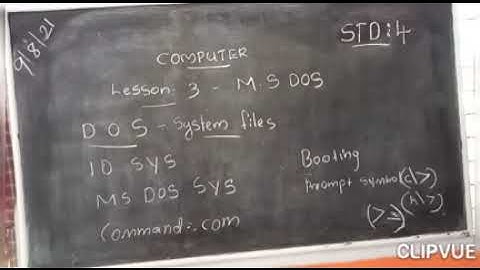 9/8/21
STD:4
COMPUTER
Lesson: 3 - M.S DOS
DOS - System files
IO SYS
MS DOS SYS
Command:.com
Booting
Prompt symbol (c\>)
(A\>)
CLIPVUE